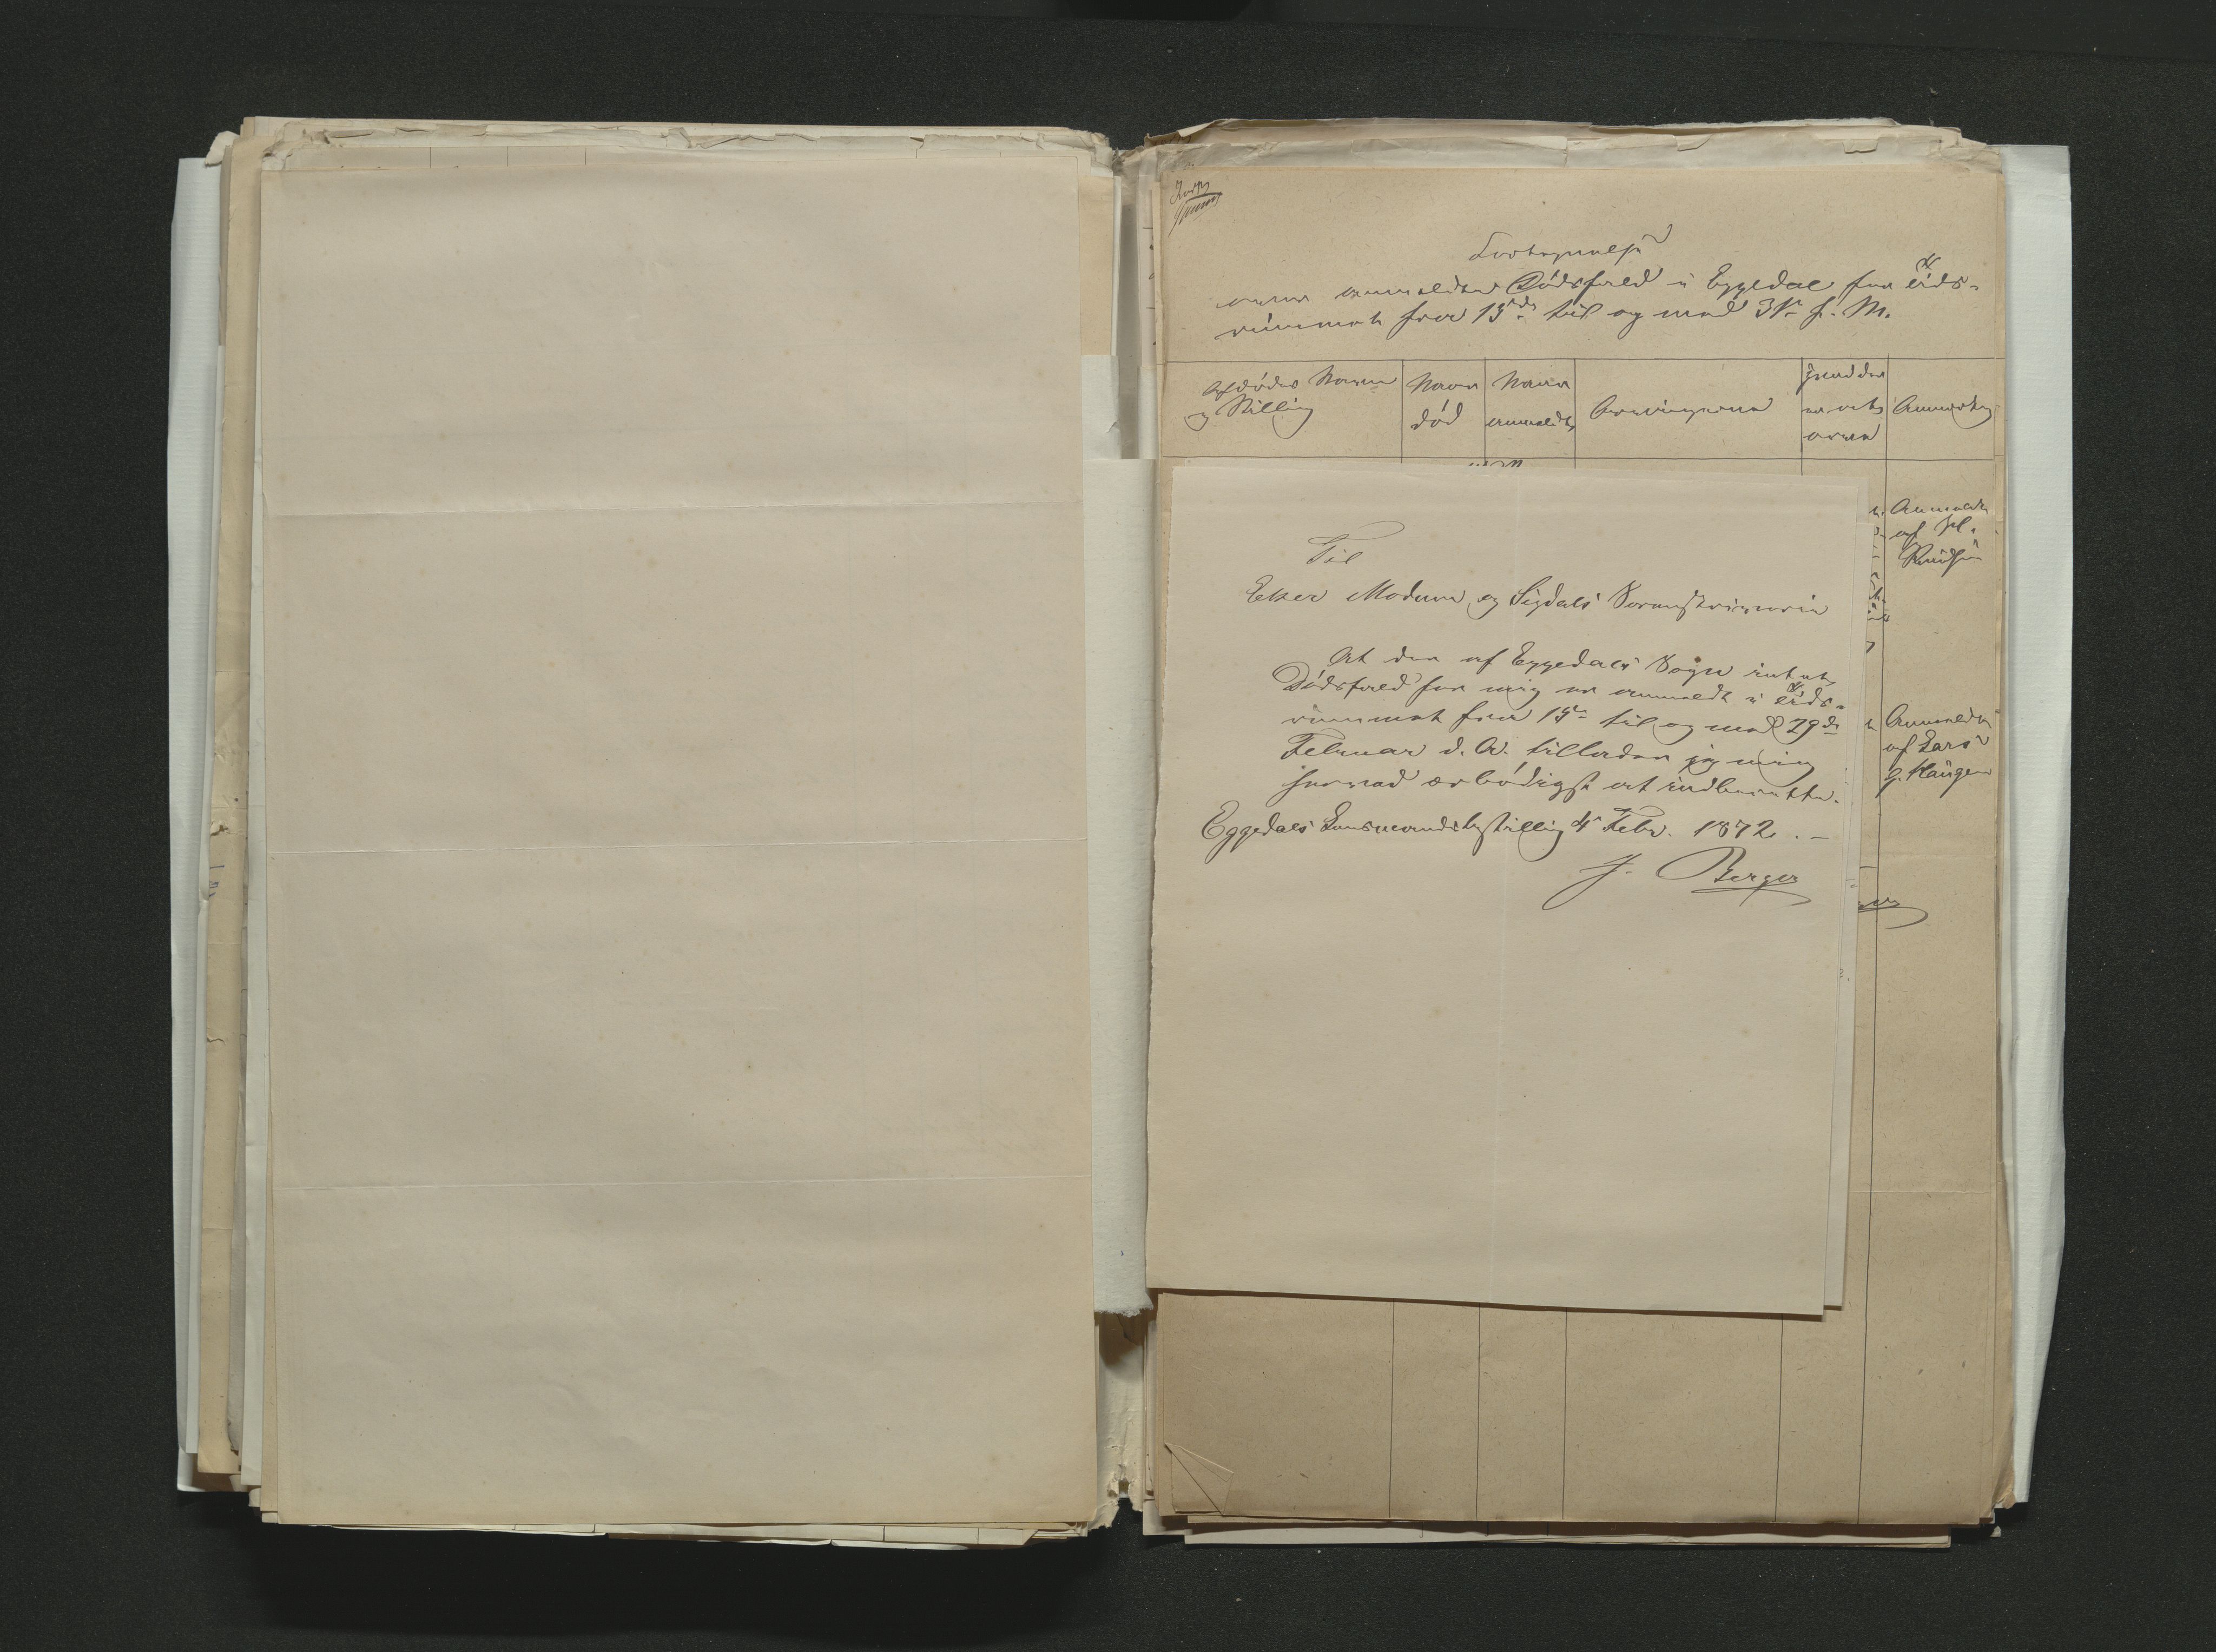 Fortegnelse
over anmeldte Dødsfald i Eggedal for Tids-
rummet fra 15de til og med 31te f. M.
Afdødes Navn
og Stilling
Naar
død
Naar
anmeldt
Arvingerne
Anmærkn
Anmeldt
af
Knudsen
Anmeldt
af Lars
G. Haugen
Til
Eker Modum og Sigdals Sorenskriverie
At der af Eggedals Sogn intet
Dødsfald for mig er anmeldt i Tids-
rummet fra 15de til og med 29de
Februar d. A. tillader jeg mig
herved ærbødigst at indberette.
Eggedals Lensmandsbestilling 4 Febr. 1872. -
J. Berger